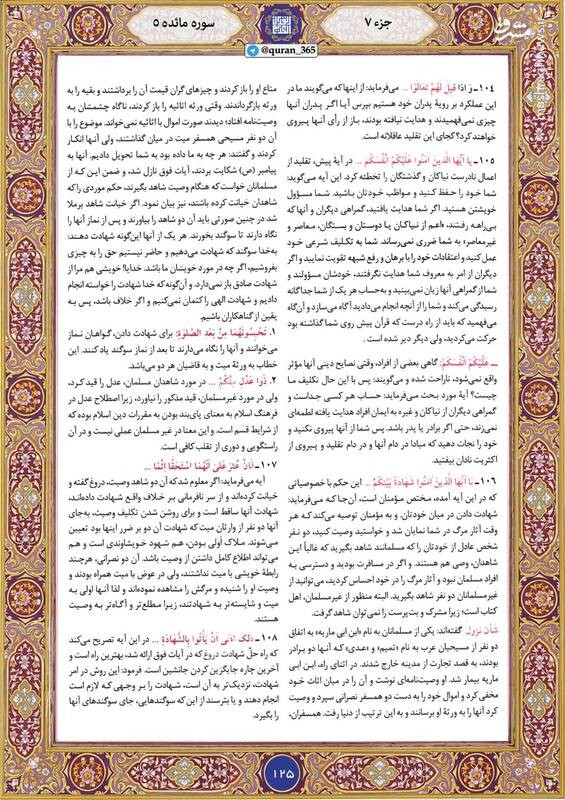 جزء ۷
سوره مائده ۵
@quran_365
مشرق
۱۰۴- وَ اذا قیلَ لَهُمْ تَعالَوْا ... می‌فرماید: از اینها که می‌گویند ما در
این عملکرد بر رویهٔ پدران خود هستیم بپرس آیا اگر پدران آنها
چیزی نمی‌فهمیدند و هدایت نیافته بودند، باز از رأی آنها پیروی
خواهند کرد؟ کجای این تقلید عاقلانه است.
۱۰۵- یا اَیُّهَا الَّذینَ امَنُوا عَلَیْکُمْ اَنْفُسَکُمْ ... در آیهٔ پیش، تقلید از
اعمال نادرست نیاکان و گذشتگان را تخطئه کرد. این آیه می‌گوید:
شما خود را حفظ کنید و مواظب خودتان باشید. شما مسؤول
خویشتن هستید. اگر شما هدایت یافتید، گمراهی دیگران و آنها که
بی‌راهه رفتند، «اعم از نیاکان یا دوستان و بستگان، معاصر و
غیرمعاصر» به شما ضرری نمی‌رساند. شما به تکلیف شرعی خود
عمل کنید و اعتقادات خود را با برهان و رفع شبهه تقویت نمایید و اگر
دیگران از امر به معروف شما هدایت نگرفتند، خودشان مسؤولند و
شما از گمراهی آنها زیان نمی‌بینید و به‌حساب هر یک از شما جداگانه
رسیدگی می‌کند و شما را از آنچه انجام می‌دادید آگاه می‌سازد و آن‌گاه
می‌فهمید که باید از راه درست که قرآن پیش روی شما گذاشته بود
حرکت می‌کردید، ولی دیگر دیر شده است.
ـ عَلَیْکُمْ اَنْفُسَکُمْ: گاهی بعضی از افراد، وقتی نصایح دینی آنها مؤثر
واقع نمی‌شود، ناراحت شده و می‌گویند: پس با این حال تکلیف ما
چیست؟ آیهٔ مورد بحث می‌فرماید: حساب هر کسی جداست و
گمراهی دیگران از نیاکان و غیره به ایمان افراد هدایت یافته لطمه‌ای
نمی‌زند، حتی اگر برادر یا پدر باشد. پس شما از آنها پیروی نکنید و
خود را نجات دهید که مبادا در دام آنها و در دام تقلید و پیروی از
اکثریت نادان بیفتید.
۱۰۶- یا اَیُّهَا الَّذینَ امَنُوا شَهادَةُ بَیْنِکُمْ ... این حکم با خصوصیاتی
که در این آیه آمده، مختص مؤمنان است، آن‌جا که می‌فرماید:
شهادت دادن در میان خودتان. و به مؤمنان توصیه می‌کند که هر
وقت آثار مرگ در شما نمایان شد و خواستید وصیت کنید، دو نفر
شخص عادل از خودتان را که مسلمانند شاهد بگیرید که غالباً این
شاهدان، وصی هم هستند. و اگر در مسافرت بودید و دسترسی به
افراد مسلمان نبود و آثار مرگ را در خود احساس کردید، می‌توانید از
غیرمسلمانان دو نفر شاهد بگیرید. البته منظور از غیرمسلمان، اهل
کتاب است؛ زیرا مشرک و بت‌پرست را نمی‌توان شاهد گرفت.
شأن نزول گفته‌اند: یکی از مسلمانان به نام «ابن ابی ماریه» به اتفاق
دو نفر از مسیحیان عرب به نام «تمیم» و «عدی» که آنها دو برادر
بودند، به قصد تجارت از مدینه خارج شدند. در اثنای راه، ابن ابی
ماریه بیمار شد. او وصیت‌نامه‌ای نوشت و آن را در میان اثاث خود
مخفی کرد و اموال خود را به دست دو همسفر نصرانی سپرد و وصیت
کرد آنها را به ورثهٔ او برسانند و به این ترتیب از دنیا رفت. همسفران،
متاع او را باز کردند و چیزهای گران قیمت آن را برداشتند و بقیه را به
ورثه بازگرداندند. وقتی ورثه اثاثیه را باز کردند، ناگاه چشمشان به
وصیت‌نامه افتاد؛ دیدند صورت اموال با اثاثیه نمی‌خواند. موضوع را با
آن دو نفر مسیحی همسفر میت در میان گذاشتند، ولی آنها انکار
کردند و گفتند: هر چه به ما داده بود به شما تحویل دادیم. آنها به
پیامبر (ص) شکایت بردند، آیات فوق نازل شد، و ضمن این که از
مسلمانان خواست که هنگام وصیت شاهد بگیرند، حکم موردی را که
شاهدان خیانت کرده باشند، نیز بیان نمود. اگر خیانت شاهد برملا
شد در چنین صورتی باید آن دو شاهد را بیاورند و پس از نماز آنها را
نگاه دارند تا سوگند بخورند. هر یک از آنها این‌گونه شهادت دهند:
به‌خدا سوگند که شهادت می‌دهیم و حاضر نیستیم حق را به چیزی
بفروشیم، اگر چه در مورد خویشان ما باشد. خدایا! خویشی هم مرا از
شهادت صادق باز نمی‌دارد. و آن‌گونه که خدا شهادت را خواسته انجام
دادیم و شهادت الهی را کتمان نمی‌کنیم و اگر خلاف باشد، پس به
یقین از گناهکاران باشیم.
۱. تَحْبِسُونَهُما مِنْ بَعْدِ الصَّلوةِ: برای شهادت دادن، گواهان نماز
می‌خوانند و آنها را نگاه می‌دارند تا بعد از نماز سوگند یاد کنند. این
خطاب به ورثهٔ میت و به قاضیان هر دو می‌باشد.
۲. ذَوا عَدْلٍ مِنْکُمْ ... در مورد شاهدان مسلمان، عدل را قید کرد،
ولی در مورد غیرمسلمان، قید مذکور را نیاورد، زیرا اصطلاح عدل در
فرهنگ اسلام به معنای پای‌بند بودن به مقررات دین اسلام بوده که
از شرایط قسم است. و این معنا در غیر مسلمان عملی نیست و در آن
راستگویی و دوری از تقلب کافی است.
۱۰۷- فَاِنْ عُثِرَ عَلی اَنَّهُمَا اسْتَحَقّا اِثْمًا ...
آیه می‌فرماید: اگر معلوم شد که آن دو شاهد وصیت، دروغ گفته و
خیانت کرده‌اند و از سر نافرمانی بر خلاف واقع شهادت داده‌اند،
شهادت آنها ساقط است و برای روشن شدن تکلیف وصیت، به‌جای
آنها دو نفر از وارثان میت که شهادت آن دو بر ضرر اینها بود تعیین
می‌شوند. ملاک اولی بودن، هم شهود خویشاوندی است و هم
می‌تواند اطلاع کامل داشتن از وصیت باشد. آن دو نصرانی، هرچند
رابطهٔ خویشی با میت نداشتند، ولی در عوض با میت همراه بودند و
وصیت او را شنیده و مرگش را مشاهده نموده‌اند و لذا آنها اولی به
میت و شایسته‌تر به شهادتند، زیرا مطلع‌تر و آگاه‌تر به وصیت
هستند.
۱۰۸- ذلِکَ اَدْنی اَنْ یَأْتُوا بِالشَّهادَةِ ... در این آیه تصریح می‌کند
که راه حلّ شهادت دروغ که در آیات فوق ارائه شد، بهترین راه است و
آخرین چاره جایگزین کردن جانشین است. فرمود: این روش در امر
شهادت، نزدیک‌تر به آن است، شهادت را بر وجهی که لازم است
انجام دهند و یا بترسند از این که سوگندهایی، جای سوگندهای آنها
را بگیرد.
۱۲۵